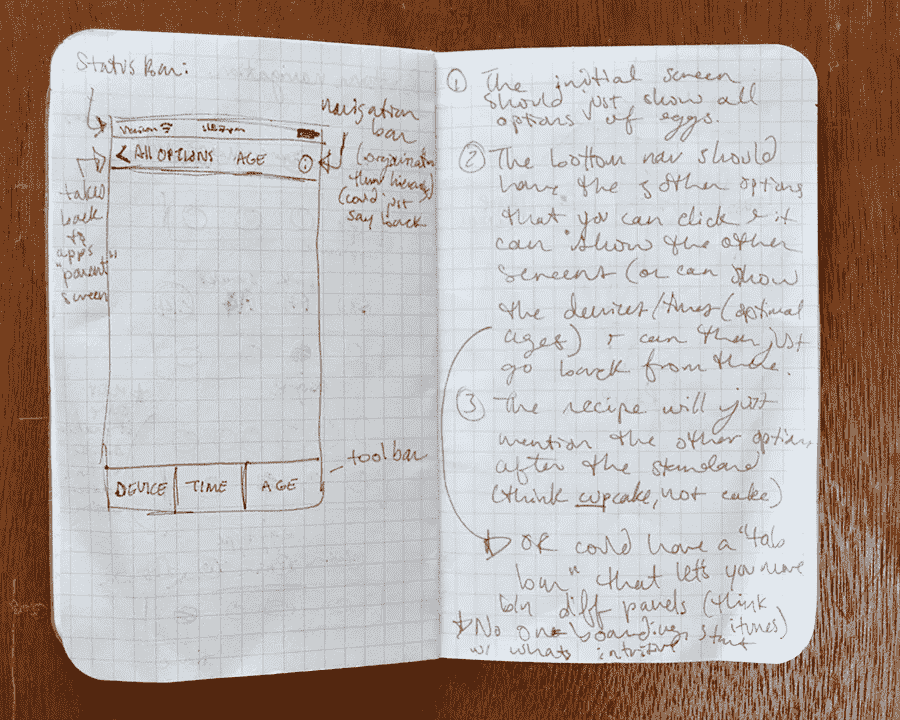 Status Bar:
navigation
bar
< All OPTIONS AGE
(could just
say back
takes
back
to
apps
"parent"
screen
toolbar
DEVICE TIME AGE
① The initial screen
should just show all
options of eggs.
② The bottom nav should
have the 3 other options
that you can click & it
can show the other
screens (or can show
the devices/times/optimal
ages) & can then just
go back from there.
③ The recipe will just
mention the other options
after the standard
(think cupcake, not cake)
OR could have a "tab
bar" that lets you move
b/n diff panels (think
itunes)
No onboarding, start
w/ whats intuitive